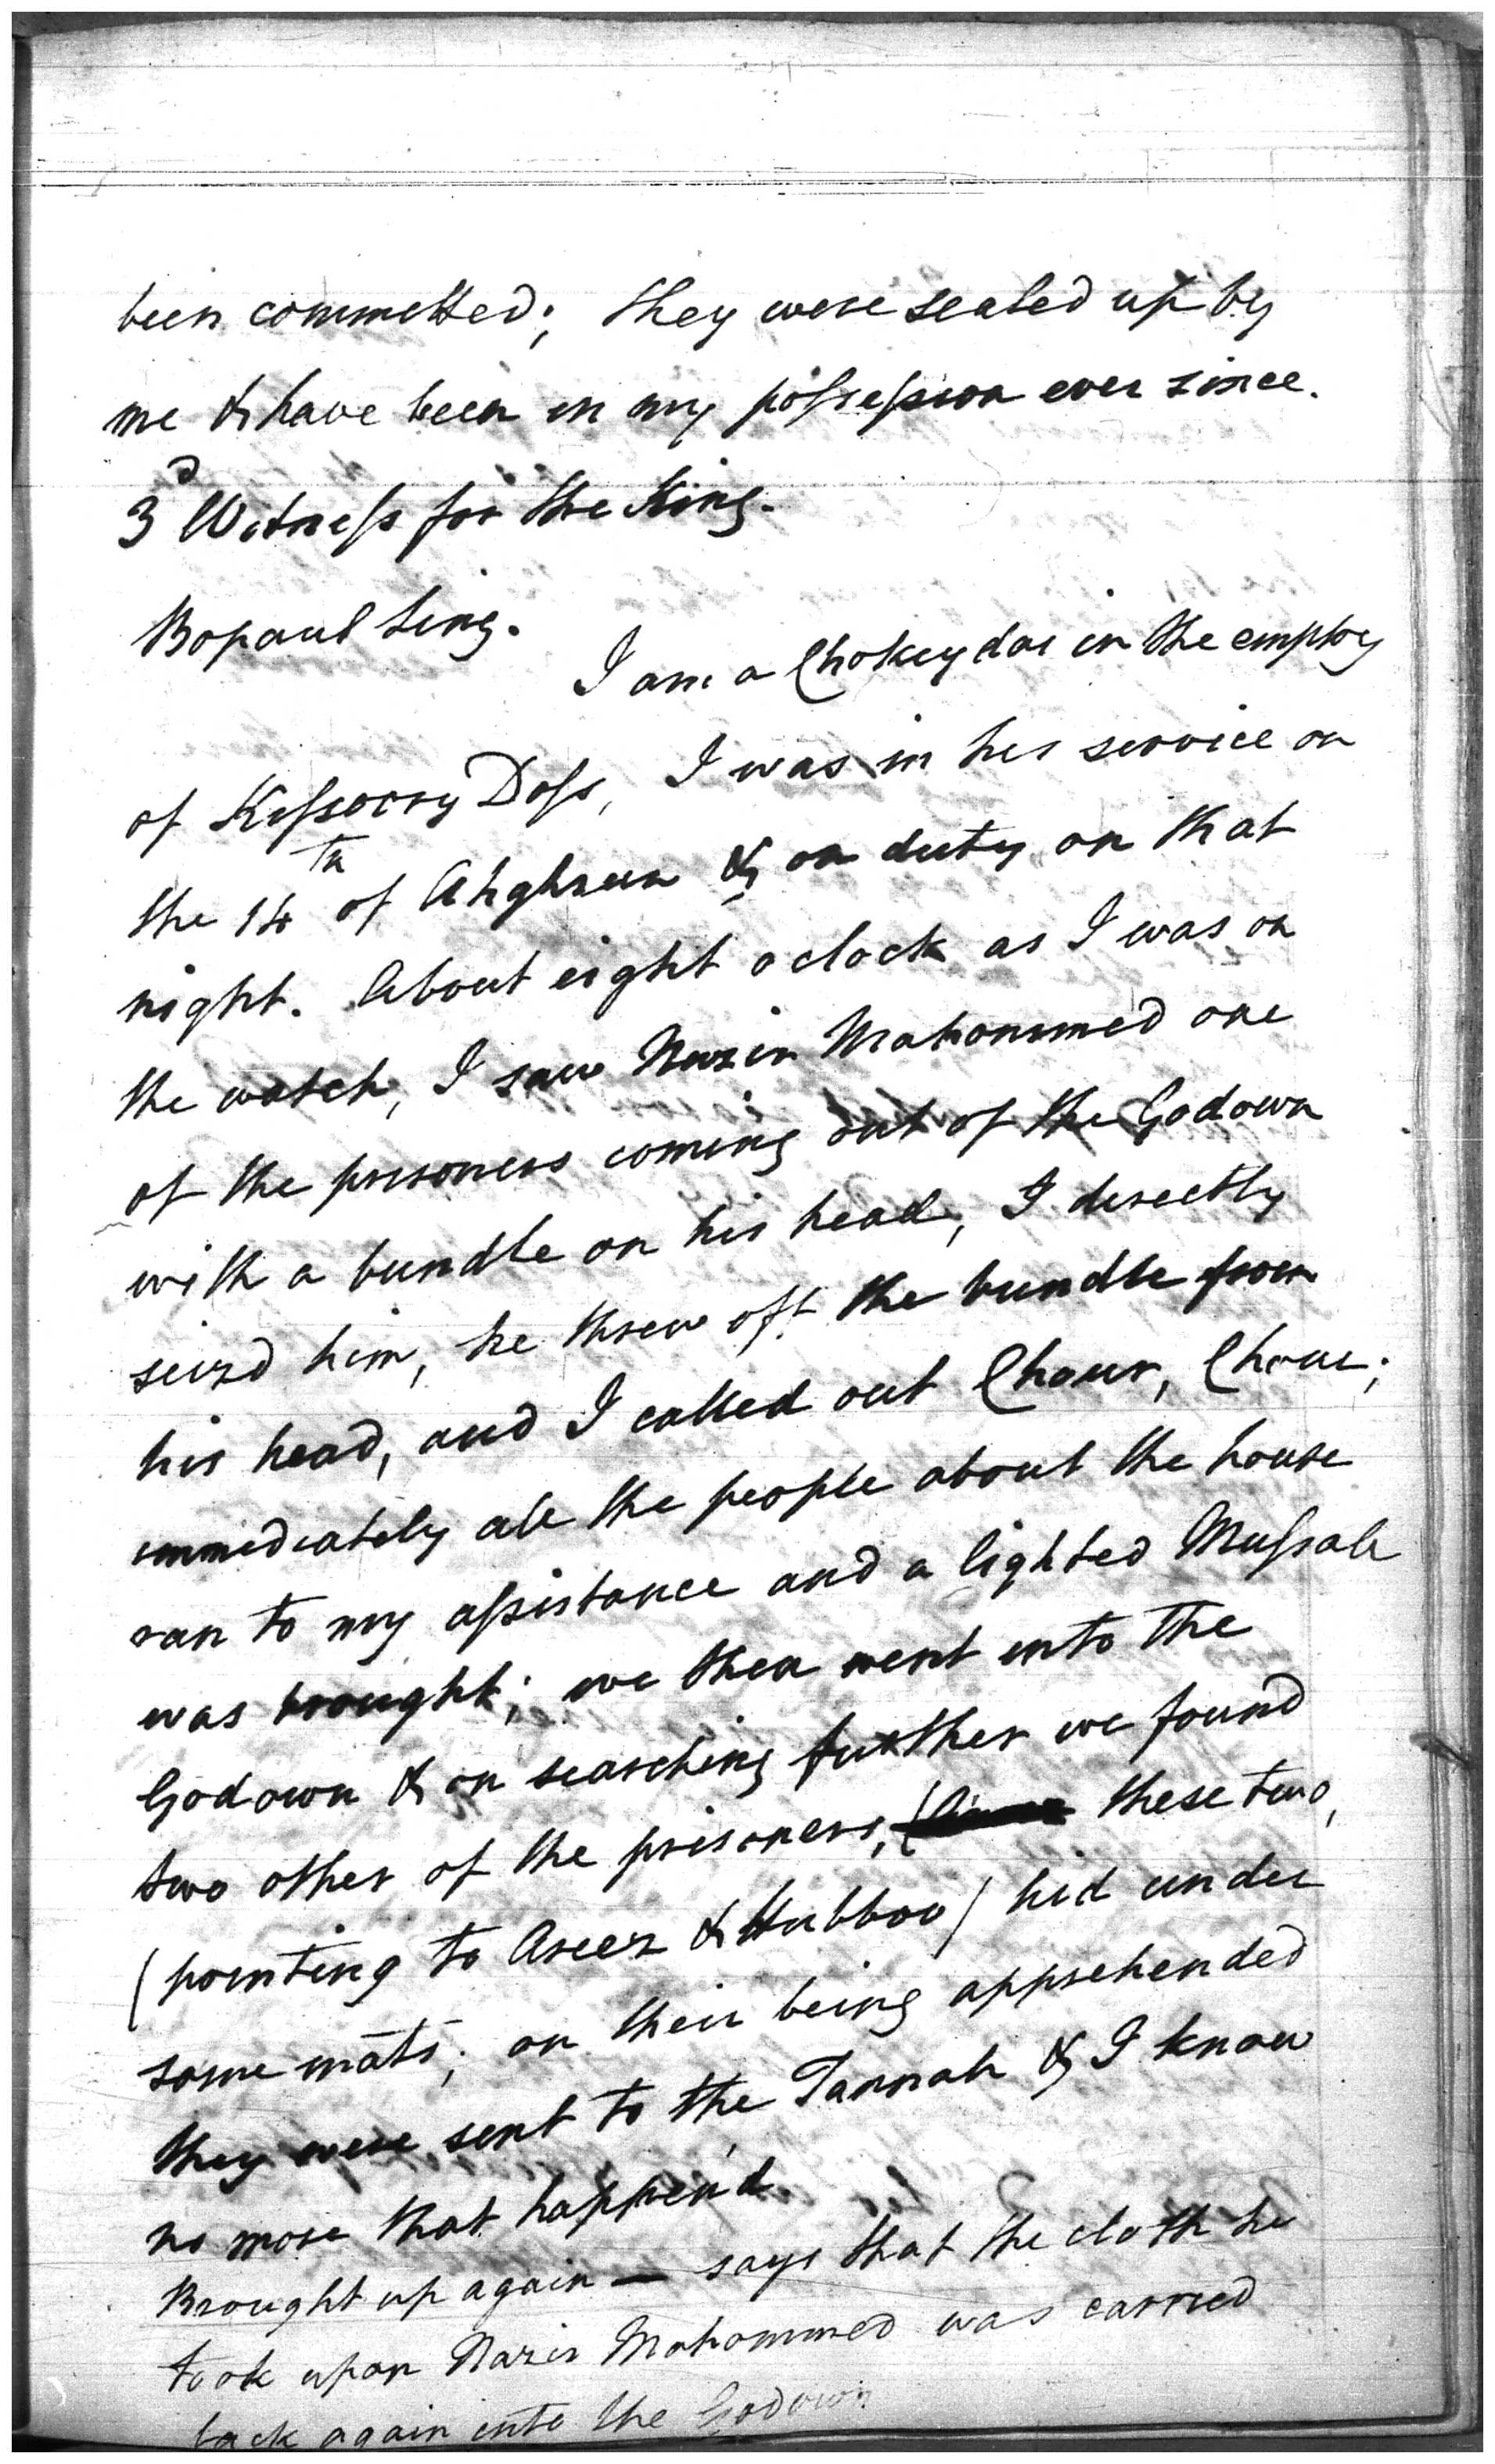 been committed; they were sealed up by
me & have been in my possession ever since.
3d Witness for the King.
Bopaul Sing.
I am a Chokeydar in the employ
of Kissorry Doss, I was in his service on
the 14th of Ahghrun & on duty on that
night. About eight o clock as I was on
the watch, I saw Nazir Mahommed one
of the prisoners coming out of the Godown
with a bundle on his head, I directly
seizd him, he threw off the bundle from
his head, and I called out Chour, Chour;
immediately all the people about the house
ran to my assistance and a lighted Mussall
was brought; we then went into the
Godown & on searching further we found
two other of the prisoners, these two,
(pointing to Aseez & Hubboo) hid under
some mats; on their being apprehended
they were sent to the Tannah & I know
no more that happen'd
Brought up again — says that the cloth he
took upon Nazir Mahommed was carried
back again into the Godown